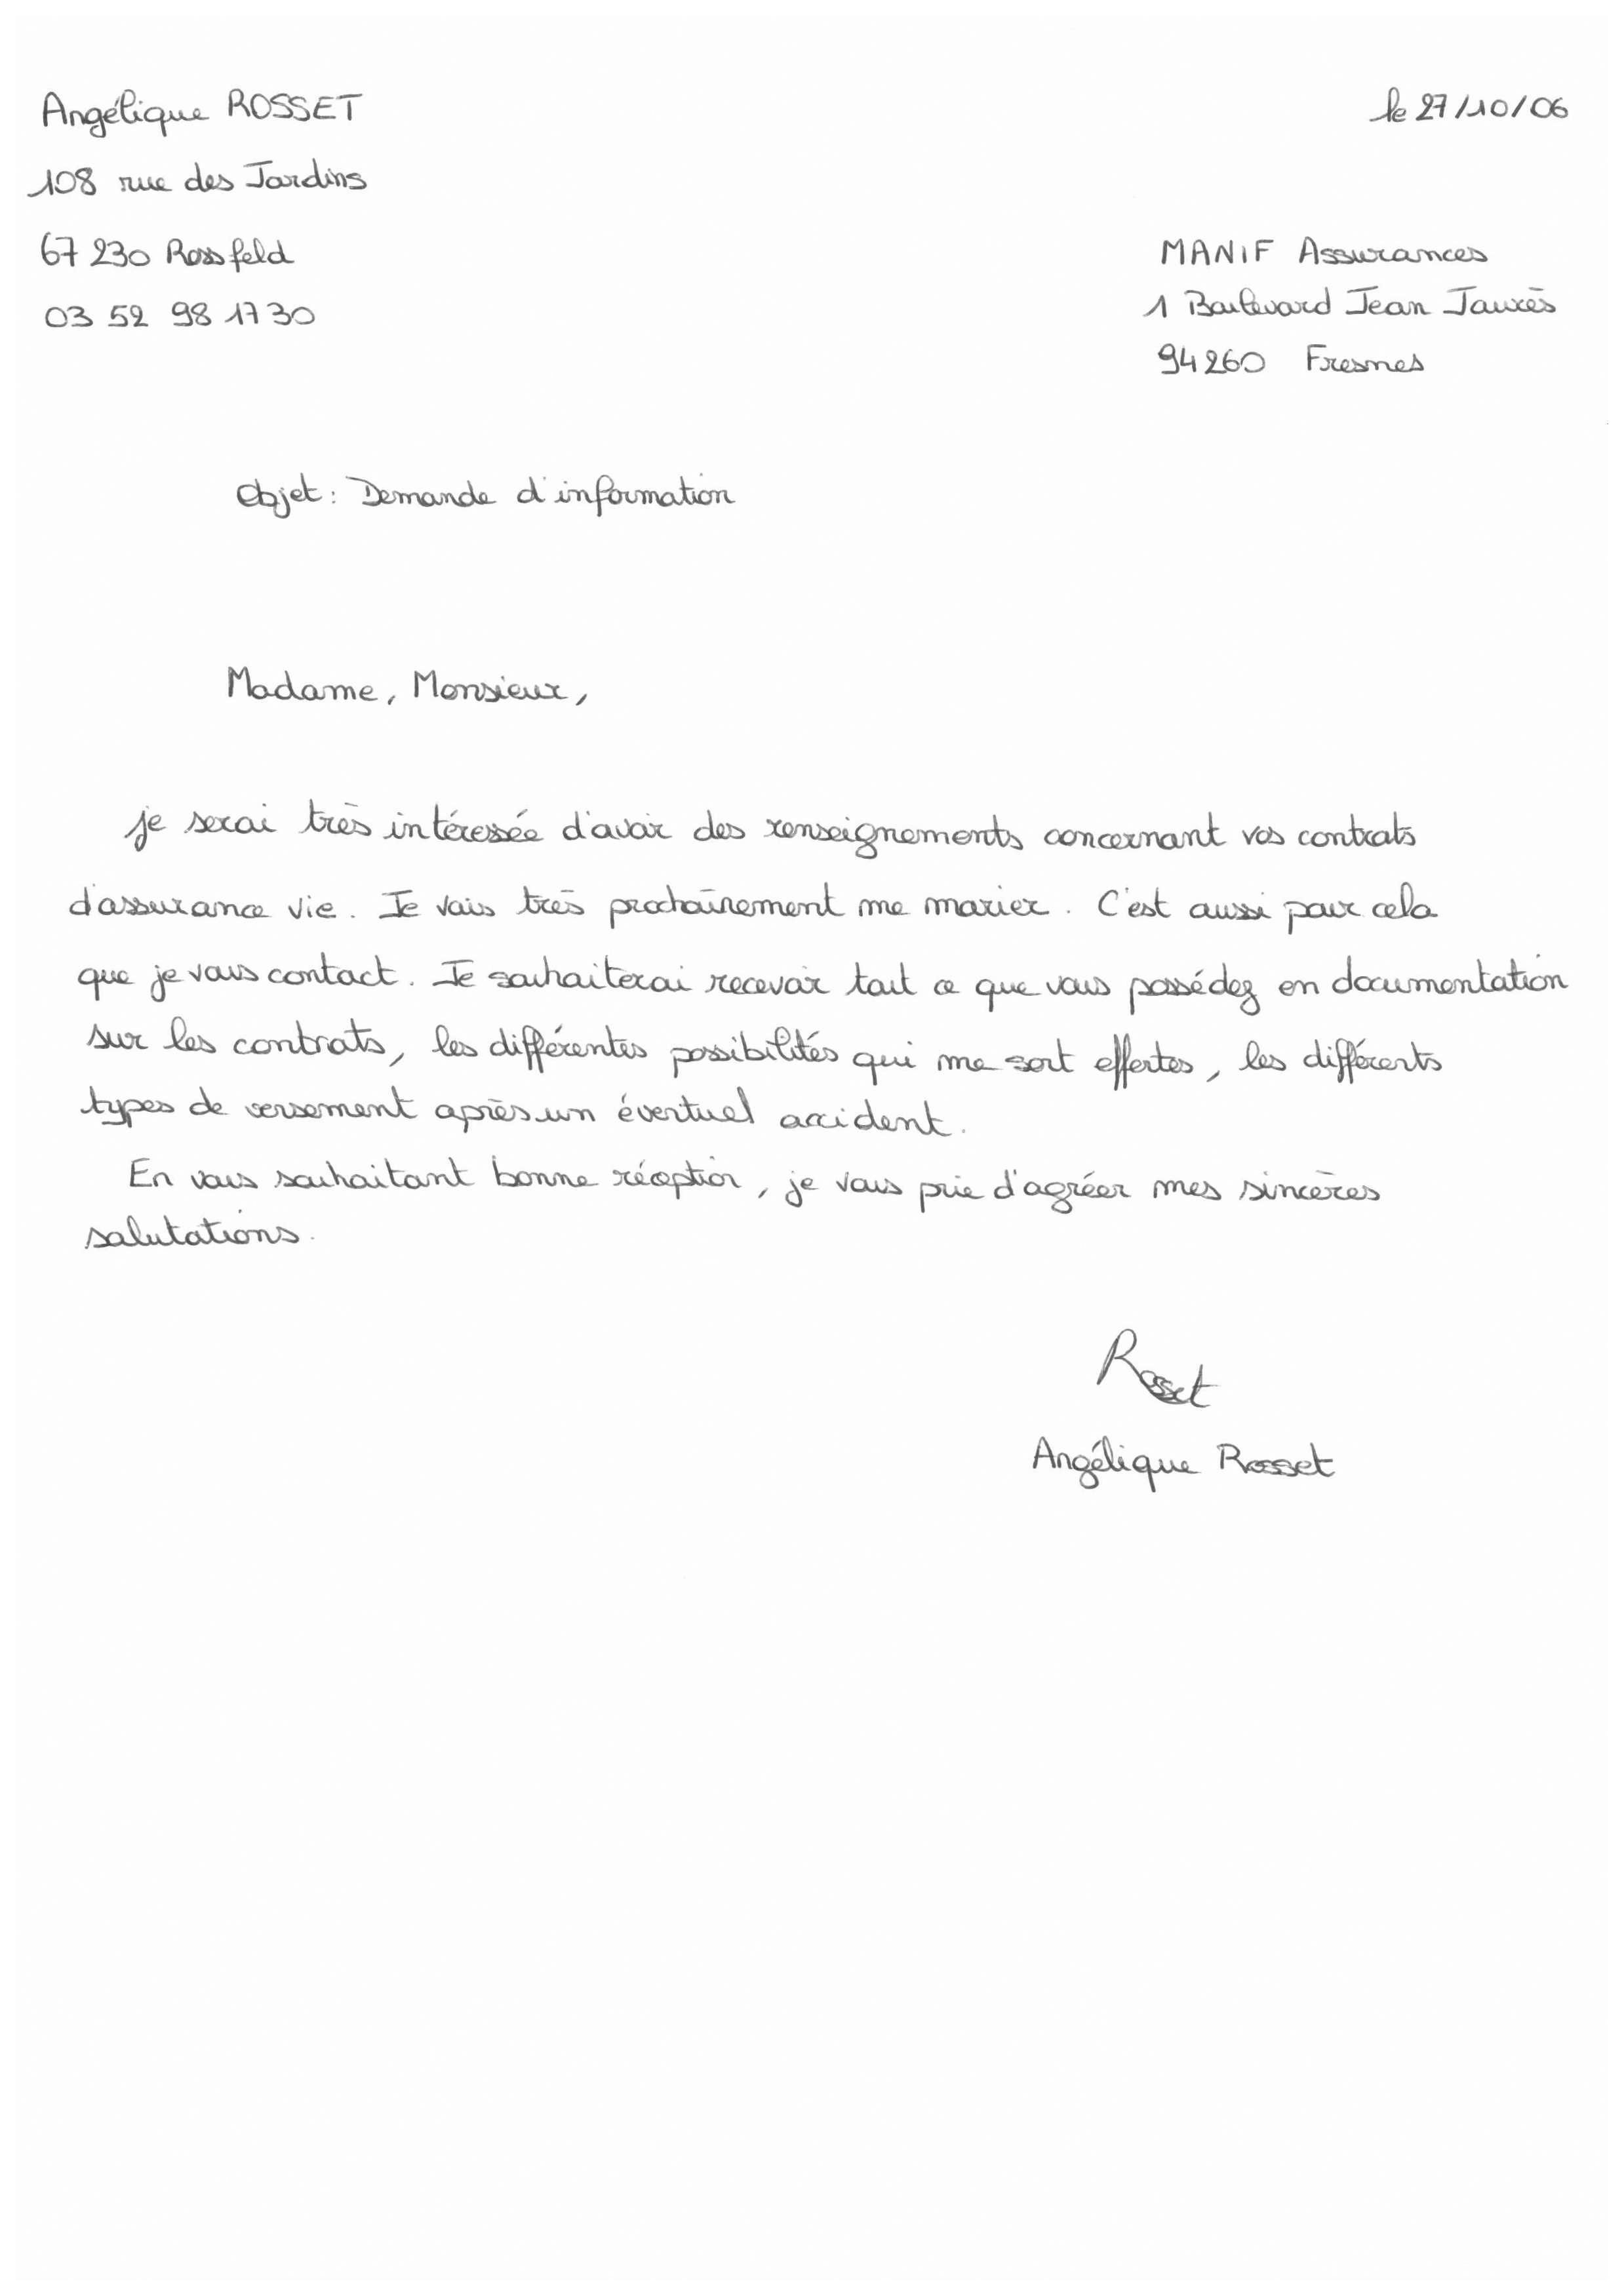 Angélique ROSSET
le 27/10/06
108 rue des Jardins
67 230 Rossfeld
03 52 98 17 30
MANIF Assurances
1 Boulevard Jean Jaurès
94260 Fresnes
Objet : Demande d'information
Madame, Monsieur,
je serai très intéressée d'avoir des renseignements concernant vos contrats
d'assurance vie. Je vais très prochainement me marier. C'est aussi pour cela
que je vous contact. Je souhaiterai recevoir tout ce que vous possédez en documentation
sur les contrats, les différentes possibilités qui me sont offertes, les différents
types de versement après un éventuel accident.
En vous souhaitant bonne réception, je vous prie d'agréer mes sincères
salutations.
Rosset
Angélique Rosset